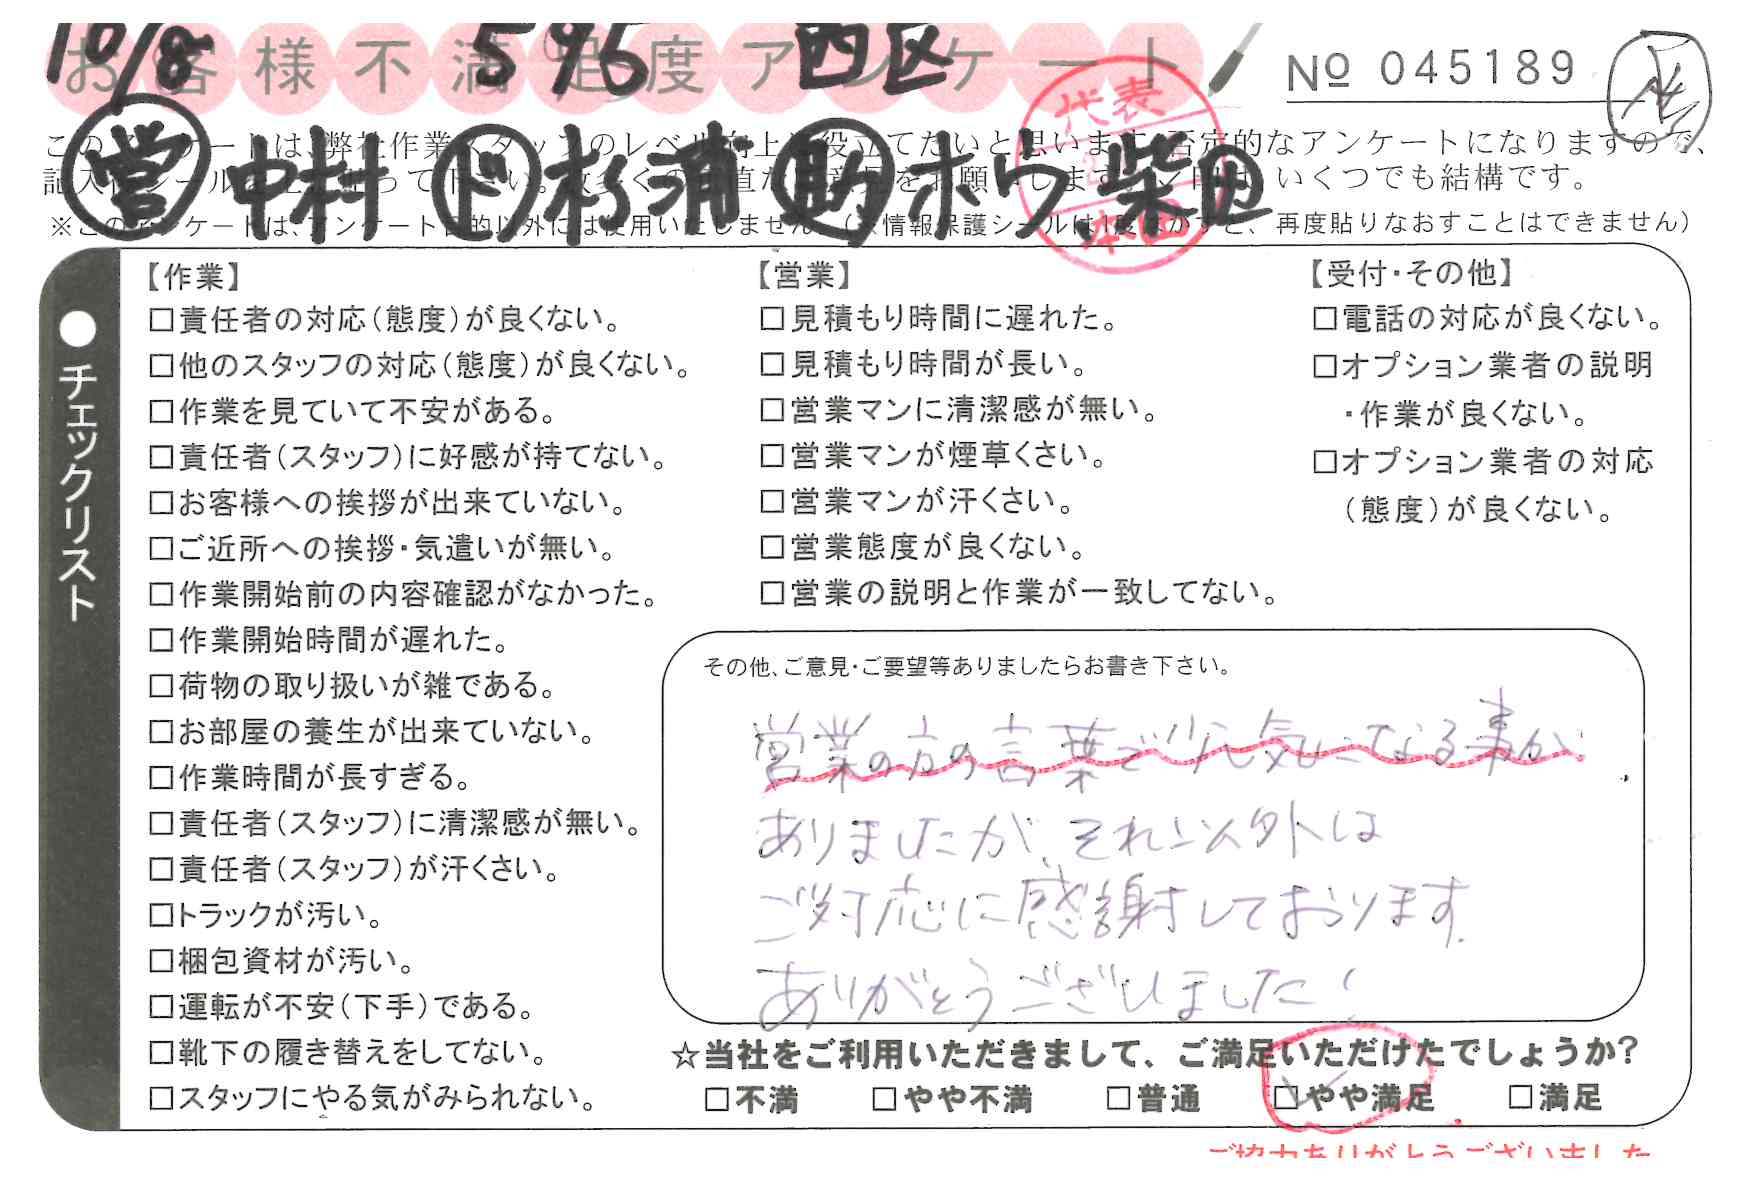 10/8 596 西区
お客様不満足度アンケート
№ 045189
代表
本田
このアンケートは、弊社作業スタッフのレベル向上に役立てたいと思います。否定的なアンケートになりますので、
営 中村 ド 杉浦 助 ホウ 柴田
※このアンケートは、アンケート目的以外には使用いたしません。(※情報保護シールは1度はがすと、再度貼りなおすことはできません)
●チェックリスト
【作業】
□責任者の対応(態度)が良くない。
□他のスタッフの対応(態度)が良くない。
□作業を見ていて不安がある。
□責任者(スタッフ)に好感が持てない。
□お客様への挨拶が出来ていない。
□ご近所への挨拶・気遣いが無い。
□作業開始前の内容確認がなかった。
□作業開始時間が遅れた。
□荷物の取り扱いが雑である。
□お部屋の養生が出来ていない。
□作業時間が長すぎる。
□責任者(スタッフ)に清潔感が無い。
□責任者(スタッフ)が汗くさい。
□トラックが汚い。
□梱包資材が汚い。
□運転が不安(下手)である。
□靴下の履き替えをしてない。
□スタッフにやる気がみられない。
【営業】
□見積もり時間に遅れた。
□見積もり時間が長い。
□営業マンに清潔感が無い。
□営業マンが煙草くさい。
□営業マンが汗くさい。
□営業態度が良くない。
□営業の説明と作業が一致してない。
【受付・その他】
□電話の対応が良くない。
□オプション業者の説明
・作業が良くない。
□オプション業者の対応
(態度)が良くない。
その他、ご意見・ご要望等ありましたらお書き下さい。
営業の方の言葉で少し気になる事が
ありましたが、それ以外は
ご対応に感謝しております。
ありがとうございました!
☆当社をご利用いただきまして、ご満足いただけたでしょうか?
□不満 □やや不満 □普通 □やや満足 □満足
ご協力ありがとうございました